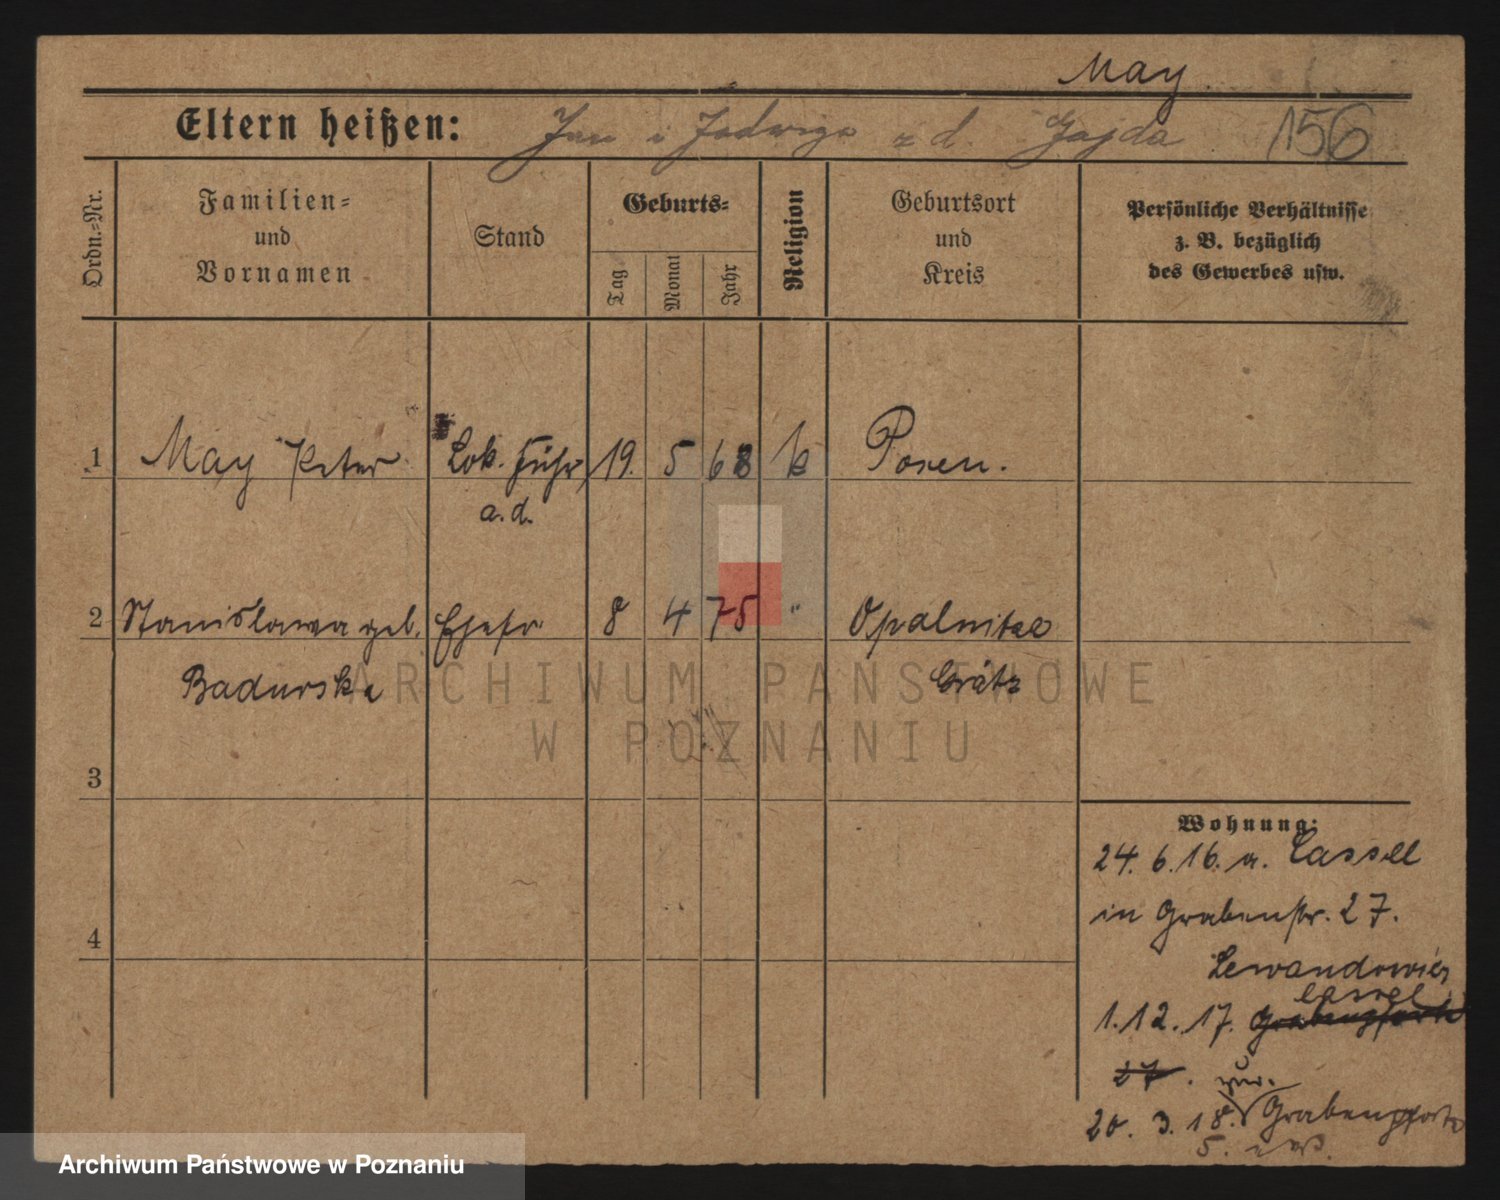 May
Eltern heißen: Jan i Jadwiga z d. Gajda 156
Ordn.-Nr.
Familien-
und
Vornamen
Stand
Geburts-
Tag
Monat
Jahr
Religion
Geburtsort
und
Kreis
Persönliche Verhältnisse
z. B. bezüglich
des Gewerbes usw.
1 May Peter Lok. Führ. 19. 5 68 k Posen.
a.d.
2 Stanislawa geb. Ehefr 8 4 75 " Opalnitza
Badurska Grätz
ARCHIWUM PAŃSTWOWE
W POZNANIU
3
4
Wohnung:
24. 6. 16. a. Cassel
in Grabenstr. 27.
Lewandowicz
Cassel
1. 12. 17. Grabenpforte
27. zur.
20. 3. 18. Grabenpforte
5.
Archiwum Państwowe w Poznaniu